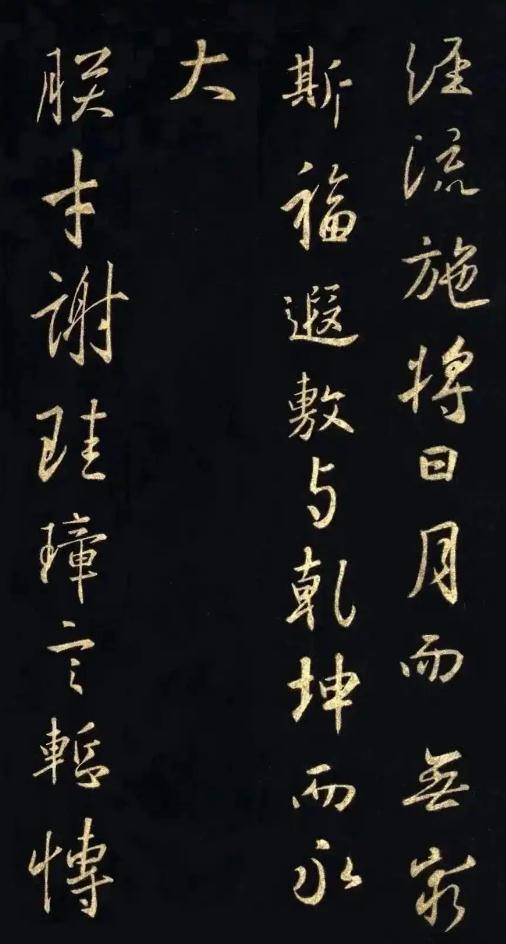 經流施將日月而無窮
斯福遐敷与乾坤而永
大
朕才謝珪璋言慙愽